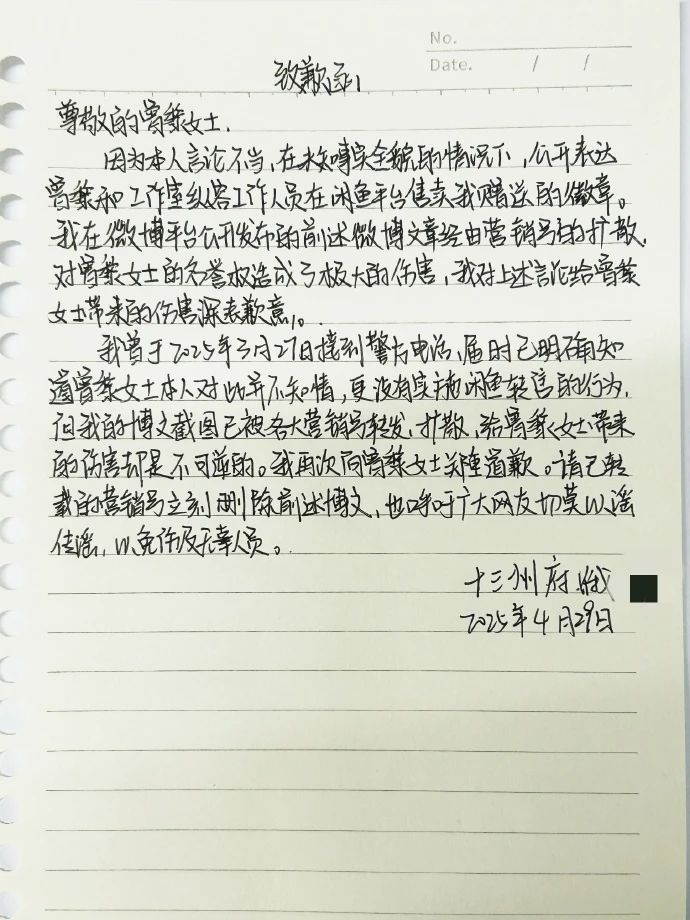 No.
Date. / /
致歉函
尊敬的曾黎女士.
因为本人言论不当,在未知事实全貌的情况下,公开表达
曾黎和工作室纵容工作人员在闲鱼平台售卖我赠送的徽章。
我在微博平台公开发布的前述微博文章经由营销号的扩散,
对曾黎女士的名誉权造成了极大的伤害,我对上述言论给曾黎
女士带来的伤害深表歉意。
我曾于2025年3月27日接到警方电话,届时已明确知
道曾黎女士本人对此并不知情,更没有实施闲鱼转售的行为,
但我的博文截图已被各大营销号转发、扩散,给曾黎女士带来
的伤害却是不可逆的。我再次向曾黎女士关隆道歉。请已转
载的营销号立刻删除前述博文,也呼吁广大网友切莫以谣
传谣,以免伤及无辜人员。
十三州府
2025年4月29日